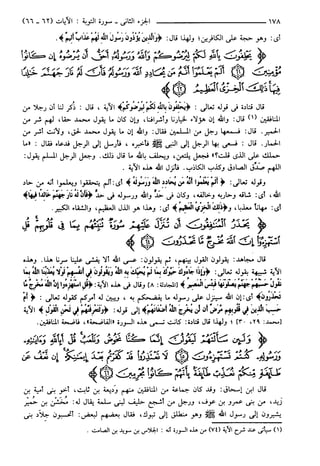 ١٧٨ الجزء الثانى ـ سورة التوبة : الآيات (٦٢ ـ ٦٦)
أى : وهو حجة على الكافرين؛ ولهذا قال : ﴿وَالَّذِينَ يُؤْذُونَ رَسُولَ اللَّهِ لَهُمْ عَذَابٌ أَلِيمٌ﴾ .
﴿يَحْلِفُونَ بِاللَّهِ لَكُمْ لِيُرْضُوكُمْ وَاللَّهُ وَرَسُولُهُ أَحَقُّ أَنْ يُرْضُوهُ إِنْ كَانُوا
مُؤْمِنِينَ (٦٢) أَلَمْ يَعْلَمُوا أَنَّهُ مَنْ يُحَادِدِ اللَّهَ وَرَسُولَهُ فَأَنَّ لَهُ نَارَ جَهَنَّمَ خَالِدًا فِيهَا
ذَلِكَ الْخِزْيُ الْعَظِيمُ (٦٣)﴾
قال قتادة فى قوله تعالى : ﴿يَحْلِفُونَ بِاللَّهِ لَكُمْ لِيُرْضُوكُمْ﴾ الآية ، قال : ذُكر لنا أن رجلا من
المنافقين (١) قال : والله إن هؤلاء لخيارنا وأشرافنا ، وإن كان ما يقول محمد حقا ، لهم شر من
الحمير . قال : فسمعها رجل من المسلمين فقال : والله إن ما يقول محمد لحق ، ولأنت أشر من
الحمار . قال : فسعى بها الرجل إلى النبى ﷺ فأخبره ، فأرسل إلى الرجل فدعاه فقال : «ما
حملك على الذى قلت؟» فجعل يلتعن ، ويحلف بالله ما قال ذلك . وجعل الرجل المسلم يقول :
اللهم صدّق الصادق وكذب الكاذب . فأنزل الله هذه الآية .
وقوله تعالى : ﴿أَلَمْ يَعْلَمُوا أَنَّهُ مَنْ يُحَادِدِ اللَّهَ وَرَسُولَهُ﴾ أى : ألم يتحققوا ويعلموا أنه من حاد
الله ، أى : شاقه وحاربه وخالفه ، وكان فى حَدٍّ والله ورسوله فى حدٍّ ﴿فَأَنَّ لَهُ نَارَ جَهَنَّمَ خَالِدًا فِيهَا﴾
أى : مهانا معذبا ، و﴿ذَلِكَ الْخِزْيُ الْعَظِيمُ﴾ أى : وهذا هو الذل العظيم ، والشقاء الكبير .
﴿يَحْذَرُ الْمُنَافِقُونَ أَنْ تُنَزَّلَ عَلَيْهِمْ سُورَةٌ تُنَبِّئُهُمْ بِمَا فِي قُلُوبِهِمْ قُلِ
اسْتَهْزِئُوا إِنَّ اللَّهَ مُخْرِجٌ مَا تَحْذَرُونَ (٦٤)﴾
قال مجاهد : يقولون القول بينهم ، ثم يقولون : عسى الله ألا يفشى علينا سرنا هذا . وهذه
الآية شبيهة بقوله تعالى : ﴿وَإِذَا جَاءُوكَ حَيَّوْكَ بِمَا لَمْ يُحَيِّكَ بِهِ اللَّهُ وَيَقُولُونَ فِي أَنْفُسِهِمْ لَوْلَا يُعَذِّبُنَا اللَّهُ بِمَا
نَقُولُ حَسْبُهُمْ جَهَنَّمُ يَصْلَوْنَهَا فَبِئْسَ الْمَصِيرُ﴾ [المجادلة : ٨] وقال فى هذه الآية : ﴿قُلِ اسْتَهْزِئُوا إِنَّ اللَّهَ مُخْرِجٌ مَا
تَحْذَرُونَ﴾ أى : إن الله سينزل على رسوله ما يفضحكم به ، ويبين له أمركم كقوله تعالى : ﴿أَمْ
حَسِبَ الَّذِينَ فِي قُلُوبِهِمْ مَرَضٌ أَنْ لَنْ يُخْرِجَ اللَّهُ أَضْغَانَهُمْ﴾ إلى قوله : ﴿وَلَتَعْرِفَنَّهُمْ فِي لَحْنِ الْقَوْلِ﴾ الآية
[محمد : ٢٩ ، ٣٠] ؛ ولهذا قال قتادة : كانت تسمى هذه السورة «الفاضحة» ، فاضحة المنافقين .
﴿وَلَئِنْ سَأَلْتَهُمْ لَيَقُولُنَّ إِنَّمَا كُنَّا نَخُوضُ وَنَلْعَبُ قُلْ أَبِاللَّهِ وَآيَاتِهِ
وَرَسُولِهِ كُنْتُمْ تَسْتَهْزِئُونَ (٦٥) لَا تَعْتَذِرُوا قَدْ كَفَرْتُمْ بَعْدَ إِيمَانِكُمْ إِنْ نَعْفُ عَنْ
طَائِفَةٍ مِنْكُمْ نُعَذِّبْ طَائِفَةً بِأَنَّهُمْ كَانُوا مُجْرِمِينَ (٦٦)﴾
قال ابن إسحاق : وقد كان جماعة من المنافقين منهم وَديعة بن ثابت ، أخو بنى أمية بن
زيد ، من بنى عمرو بن عوف ، ورجل من أشجع حليف لبنى سلمة يقال له : مُخَشّن بن حُميّر
يشيرون إلى رسول الله ﷺ وهو منطلق إلى تبوك ، فقال بعضهم لبعض : أتحسبون جلاد بنى
(١) سيأتى عند شرح الآية (٧٤) من هذه السورة أنه : الجلاس بن سويد بن الصامت .